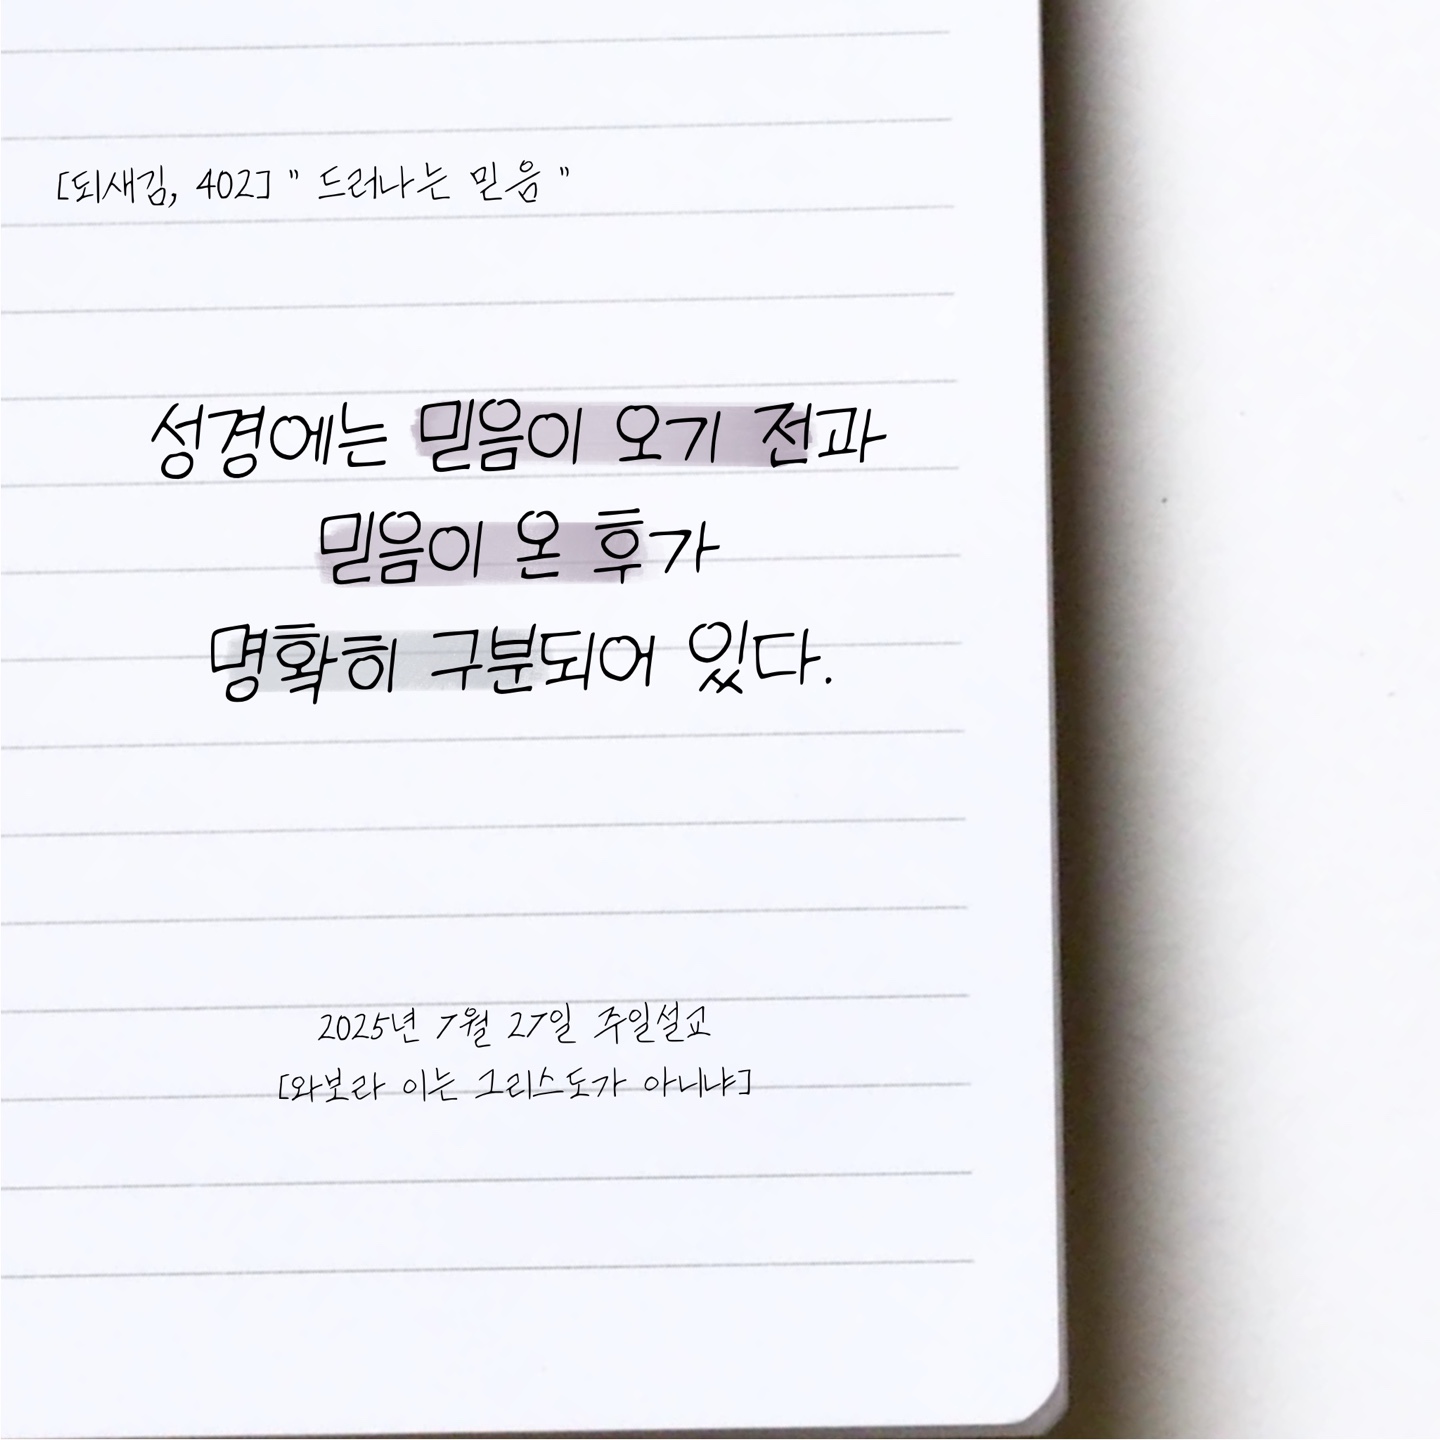 [되새김, 402] " 드러나는 믿음 "
성경에는 믿음이 오기 전과
믿음이 온 후가
명확히 구분되어 있다.
2025년 7월 27일 주일설교
[와보라 이는 그리스도가 아니냐]